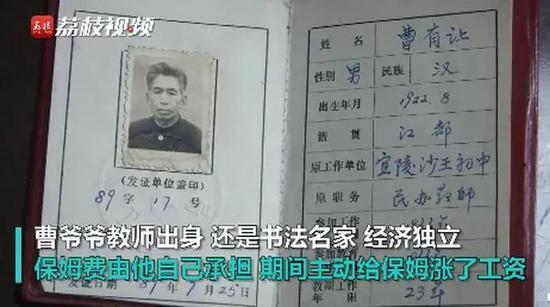 荔枝 荔枝视频
姓名 曹有让
性别 男 民族 汉
出生年月 1922.8
籍贯 江都
原工作单位 宜陵沙王初中
原职务 民办教师
参加工作
(发证单位盖印)
89字 17号
曹爷爷教师出身 还是书法名家 经济独立
保姆费由他自己承担 期间主动给保姆涨了工资
月25日
教期工作
23年